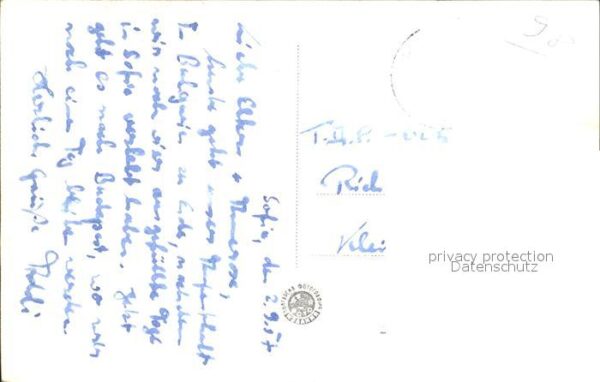 Sofia, den 2.9.57
Liebe Eltern + Annerose,
heute geht unser Aufenthalt
in Bulgarien zu Ende, nachdem
wir noch ausgefüllte Tage
in Sofia verlebt haben. Jetzt
geht es nach Budapest, wo wir
noch einen Tag bleiben werden.
Herzliche Grüße
98
privacy protection
Datenschutz